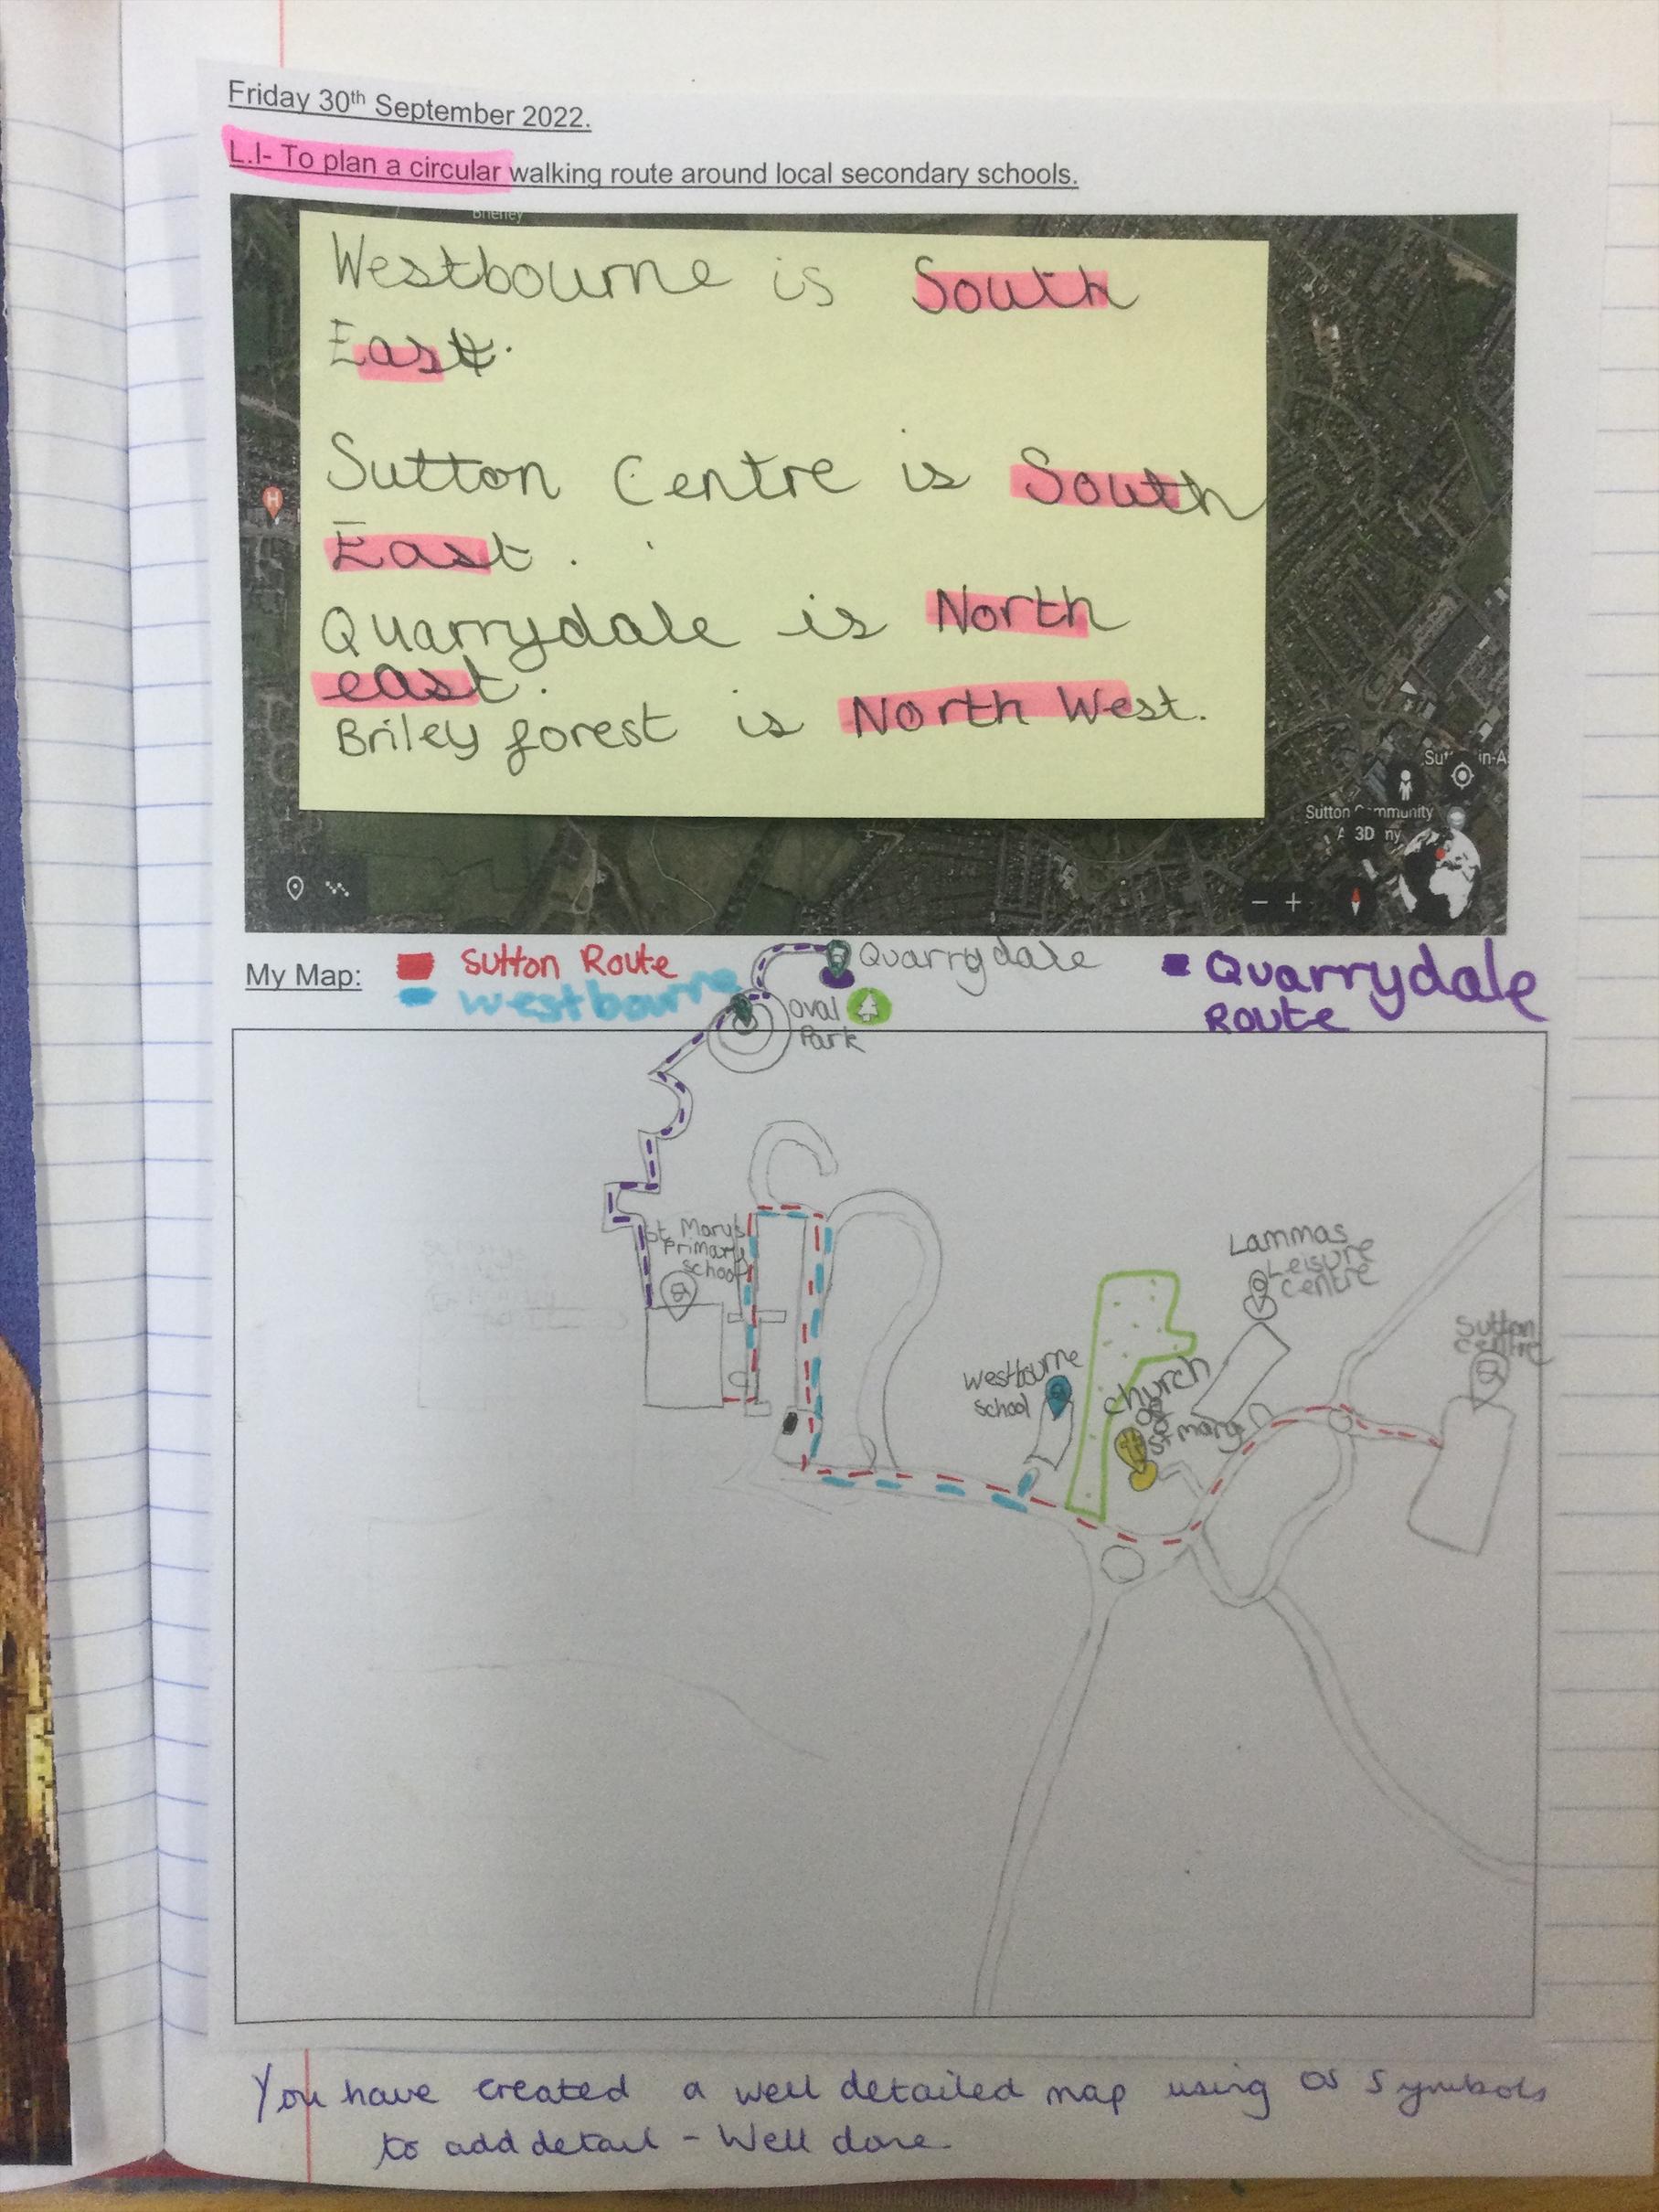 Friday 30th September 2022.
L.I- To plan a circular walking route around local secondary schools.
Brierley
Westbourne is South
East.
Sutton Centre is South
East.
Quarrydale is North
east.
Briley forest is North West.
H
in-A
Sutton Community
3D
My Map:
Sutton Route
westbourne
Quarrydale
Quarrydale
Route
oval
Park
St Mary's
Primary
School
Lammas
Leisure
Centre
Sutton
centre
Westbourne
School
Church
of
St Mary
You have created a well detailed map using OS Symbols
to add detail - Well done